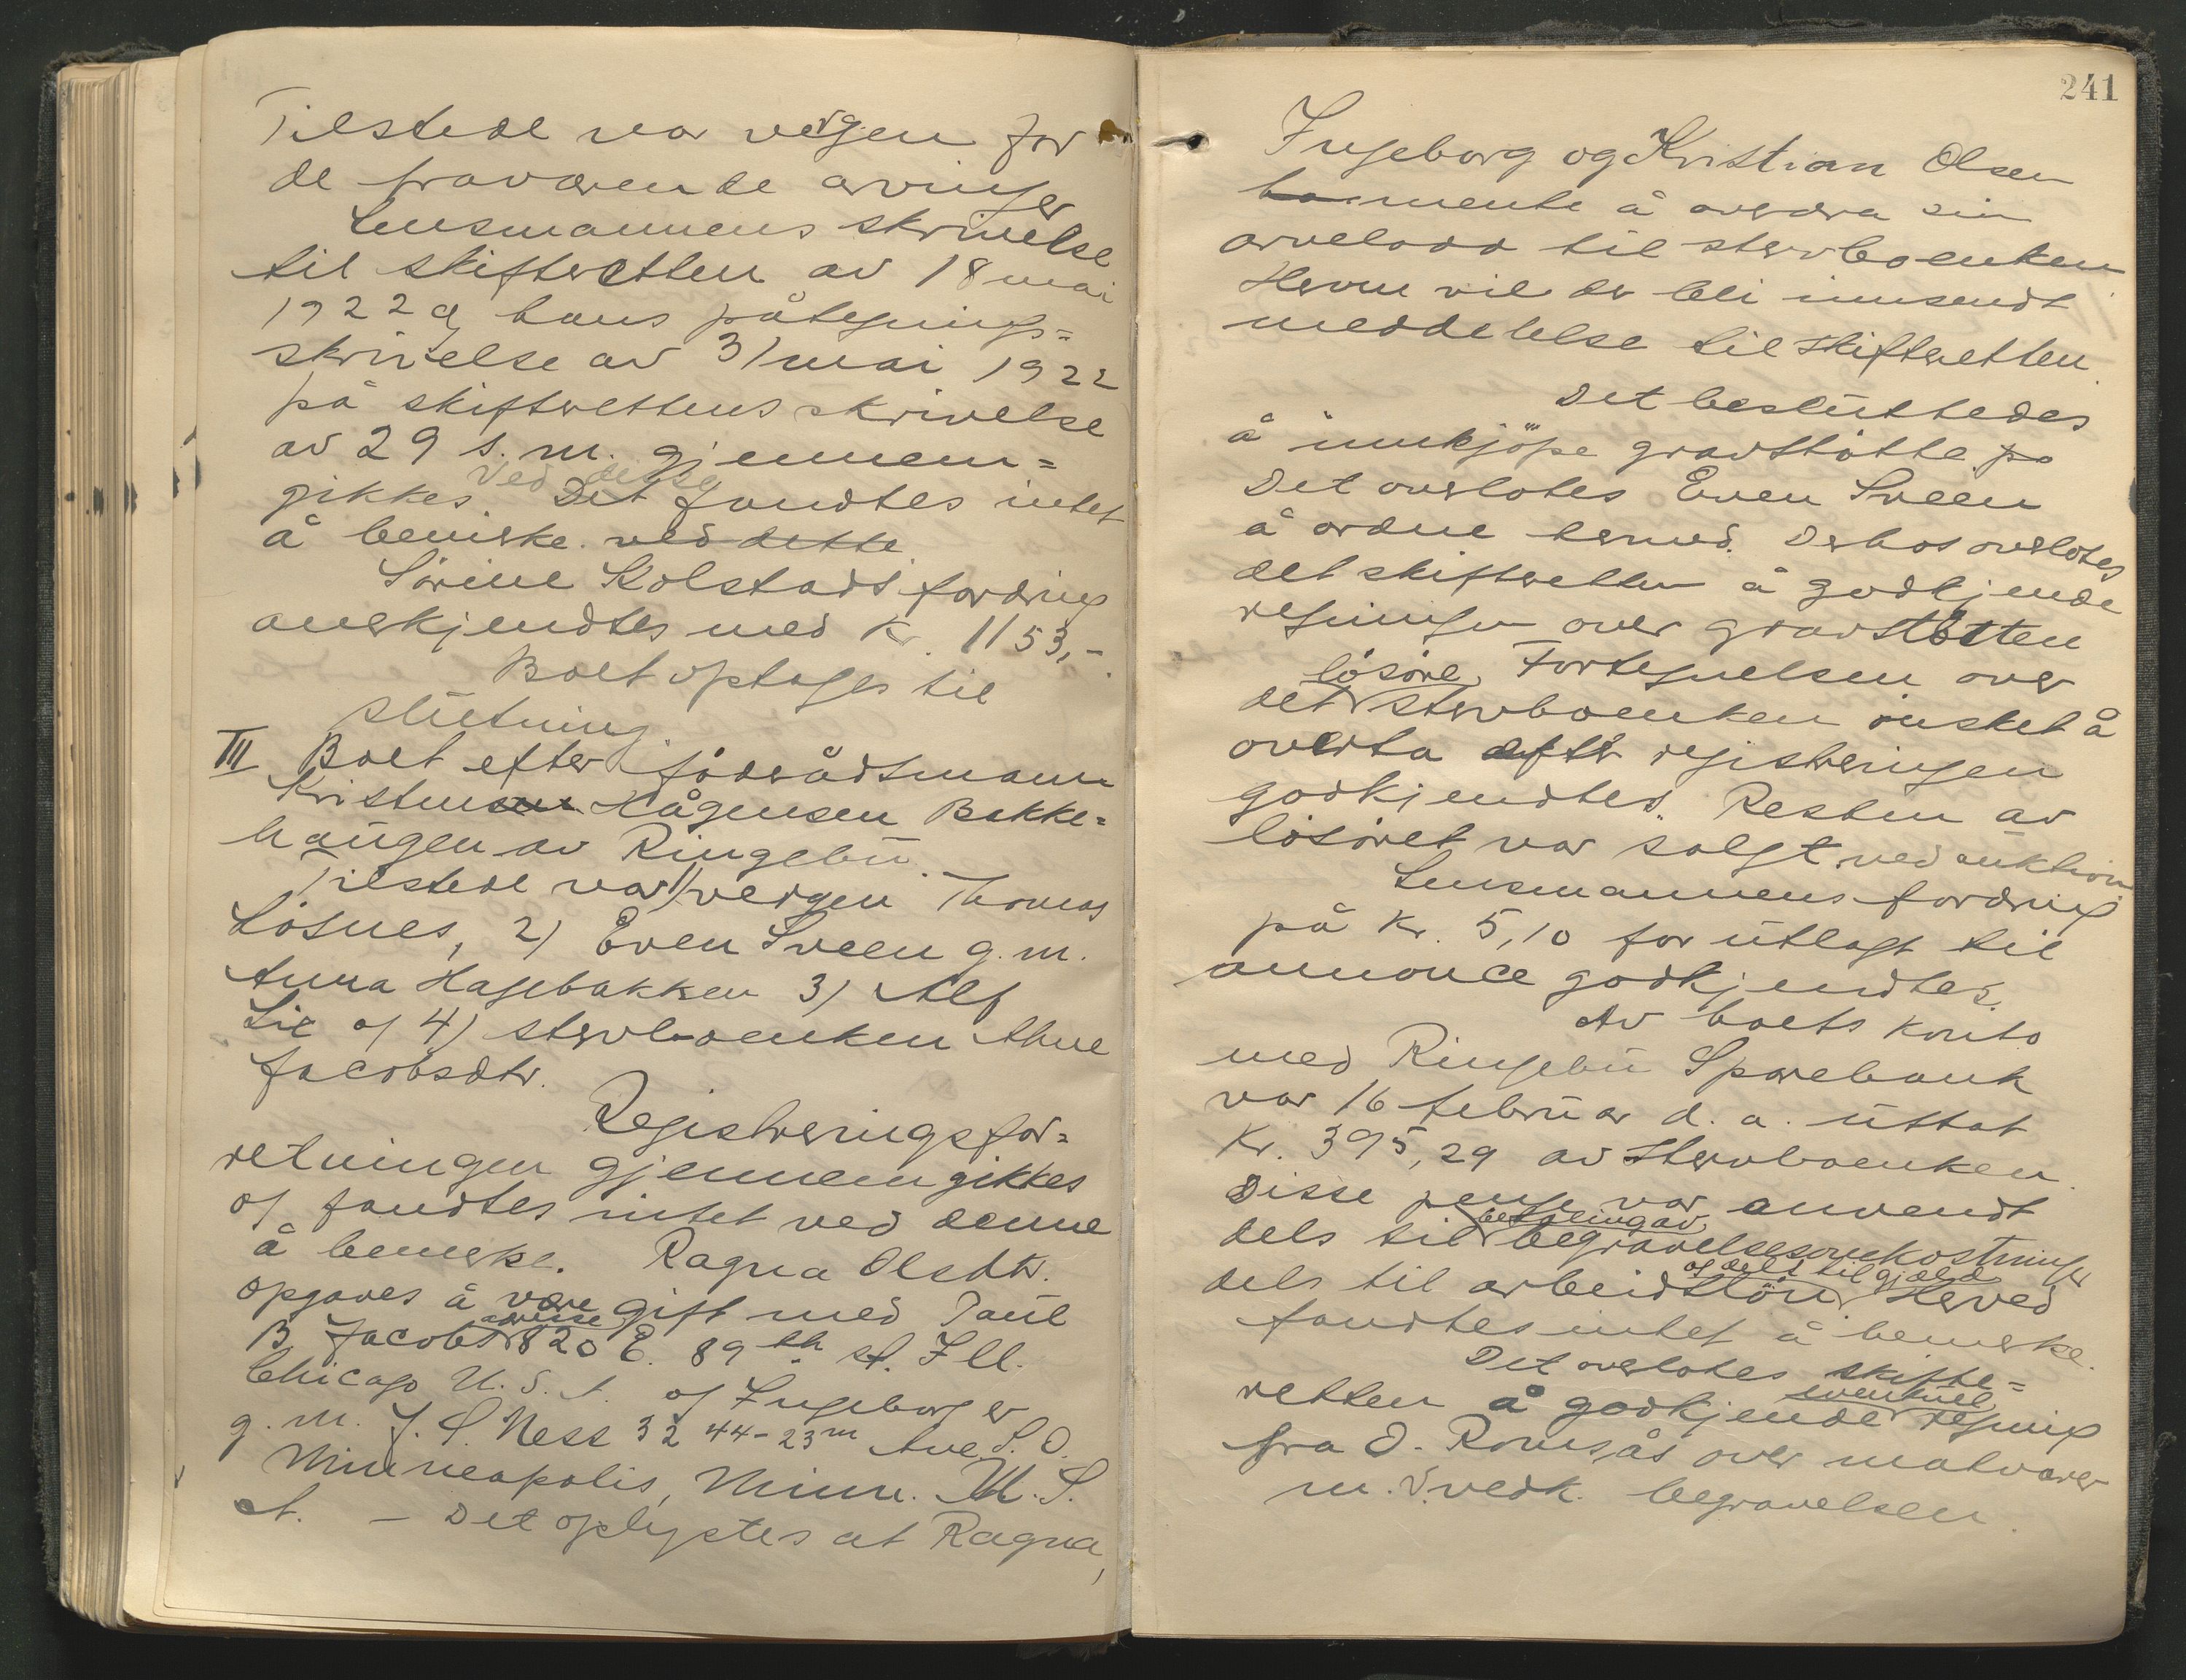 Tilstede var vergen for
de fraværende arvinger
Lensmannens skrivelse
til skifteretten av 18 mai
1922 og hans påtegnings=
skrivelse av 31 mai 1922
på skifterettens skrivelse
av 29 s. m. gjennem=
gikkes. Ved disse Det fandtes intet
å bemerke. ved dette
Sörine Kolstads fordring
anerkjendtes med kr. 1153,-
Boet optages til
slutning.
III Boet efter föderådsmann
Kristen Hågensen Bakke=
haugen av Ringebu.
Tilstede var 1) vergen Thomas
Lösnes, 2) Even Sveen g. m.
Anna Hagebakken 3) Alf
Lie og 4) sterboenken Ane
Jacobsdtr.
Registreringsfor=
retningen gjennemgikkes
og fandtes intet ved denne
å bemerke. Ragna Olsdtr.
opgaves å være gift med Paul
B. Jacobs adresse 820 E. 89th st. Ill.
Chicago U. S. A. og Ingeborg er
g. m. J. S. Ness 3244-23m Ave S. O.
Minneapolis, Minn. U. S.
A. - Det oplystes at Ragna,
241
Ingeborg og Kristian Olsen
mente å overdra sin
arvelodd til sterboenken
Herom vil der bli innsendt
meddelelse til skifteretten.
Det besluttedes
å innkjöpe gravstötte
Det overlotes Even Sveen
å ordne hermed. Derhos overlotes
det skifteretten å godkjende
regningen over gravstötten
Fortegnelsen over
det lösöre sterboenken önsket å
overta efter registreringen
godkjendtes. Resten av
lösöret var solgt ved auktion
Lensmannens fordring
på kr. 5,10 for utlagt til
annonce godkjendtes.
Av boets konto
med Ringebu Sparebank
var 16 februar d. a. uttat
Kr. 395,29 av sterboenken.
Disse penge var anvendt
dels til betaling av begravelsesomkostninger
dels til arbeidslön og dels til gjæld Herved
fandtes intet å bemerke.
Det overlotes skifte=
retten å godkjende eventuel regning
fra O. Romsås over matvarer
m. v. vedk. begravelsen.